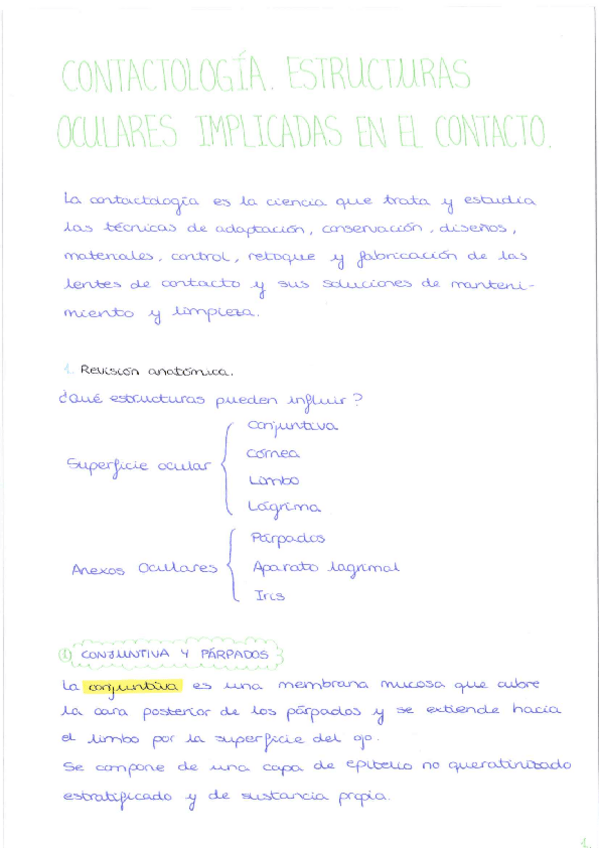 CONTACTOLOGÍA. ESTRUCTURAS
OCULARES IMPLICADAS EN EL CONTACTO.
La contactología es la ciencia que trata y estudia
las técnicas de adaptación, conservación, diseños,
materiales, control, retoque y fabricación de las
lentes de contacto y sus soluciones de manteni-
miento y limpieza.
1. Revisión anatómica.
¿Qué estructuras pueden influir?
Superficie ocular
Conjuntiva
Córnea
Limbo
Lágrima
Anexos Oculares
Párpados
Aparato lagrimal
Iris
① CONJUNTIVA Y PÁRPADOS
La conjuntiva es una membrana mucosa que cubre
la cara posterior de los párpados y se extiende hacia
el limbo por la superficie del ojo.
Se compone de una capa de epitelio no queratinizado
estratificado y de sustancia propia.
1.